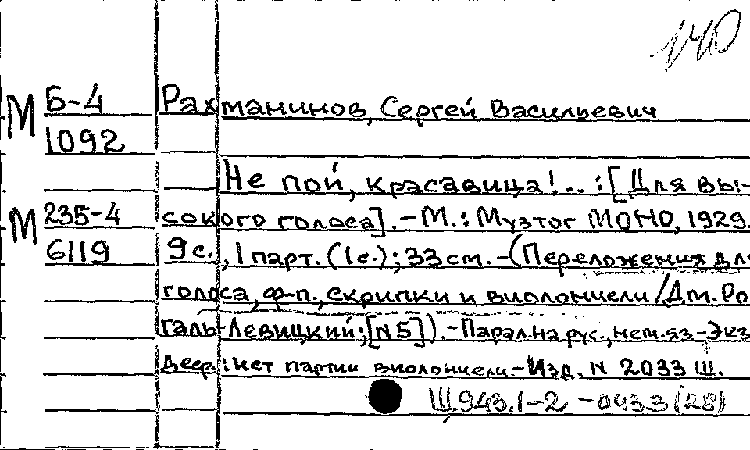 140
М Б-4 Рахманинов, Сергей Васильевич
1092
Не пой, красавица!..:[Для вы-
М 235-4 сокого голоса].-М.: Музтог МОНО, 1929.
6119 9 с., 1 парт. (1 с.); 33 см.-(Переложения для
голоса, ф-п., скрипки и виолончели/Дм. Ро-
галь-Левицкий; [N 5]).-Парал. на рус., нем. яз.-Экз.
дефр: нет партии виолончели-Изд. N 2033 Ш.
Щ943.1-2 -0433(28)